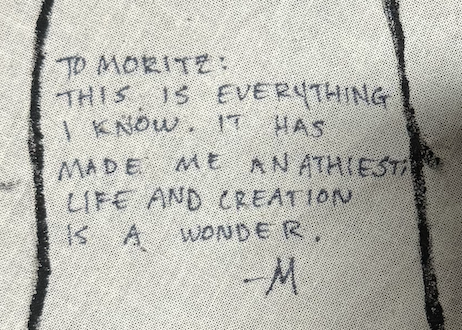 TO MORITZ:
THIS IS EVERYTHING
I KNOW. IT HAS
MADE ME AN ATHIEST.
LIFE AND CREATION
IS A WONDER.
-M